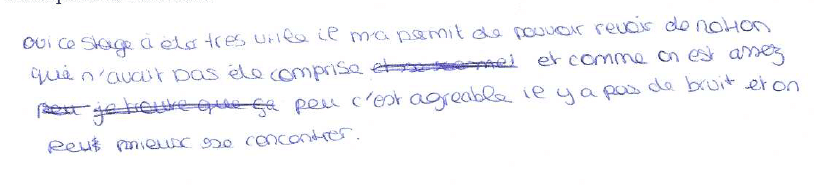 oui ce stage à été très utile il ma permit de pouvoir revoir de notion
qui n'avait pas éte comprise et comme on est assez
peu je trouve que ça peu c'est agreable il y a pas de bruit et on
peut mieux se concentrer.